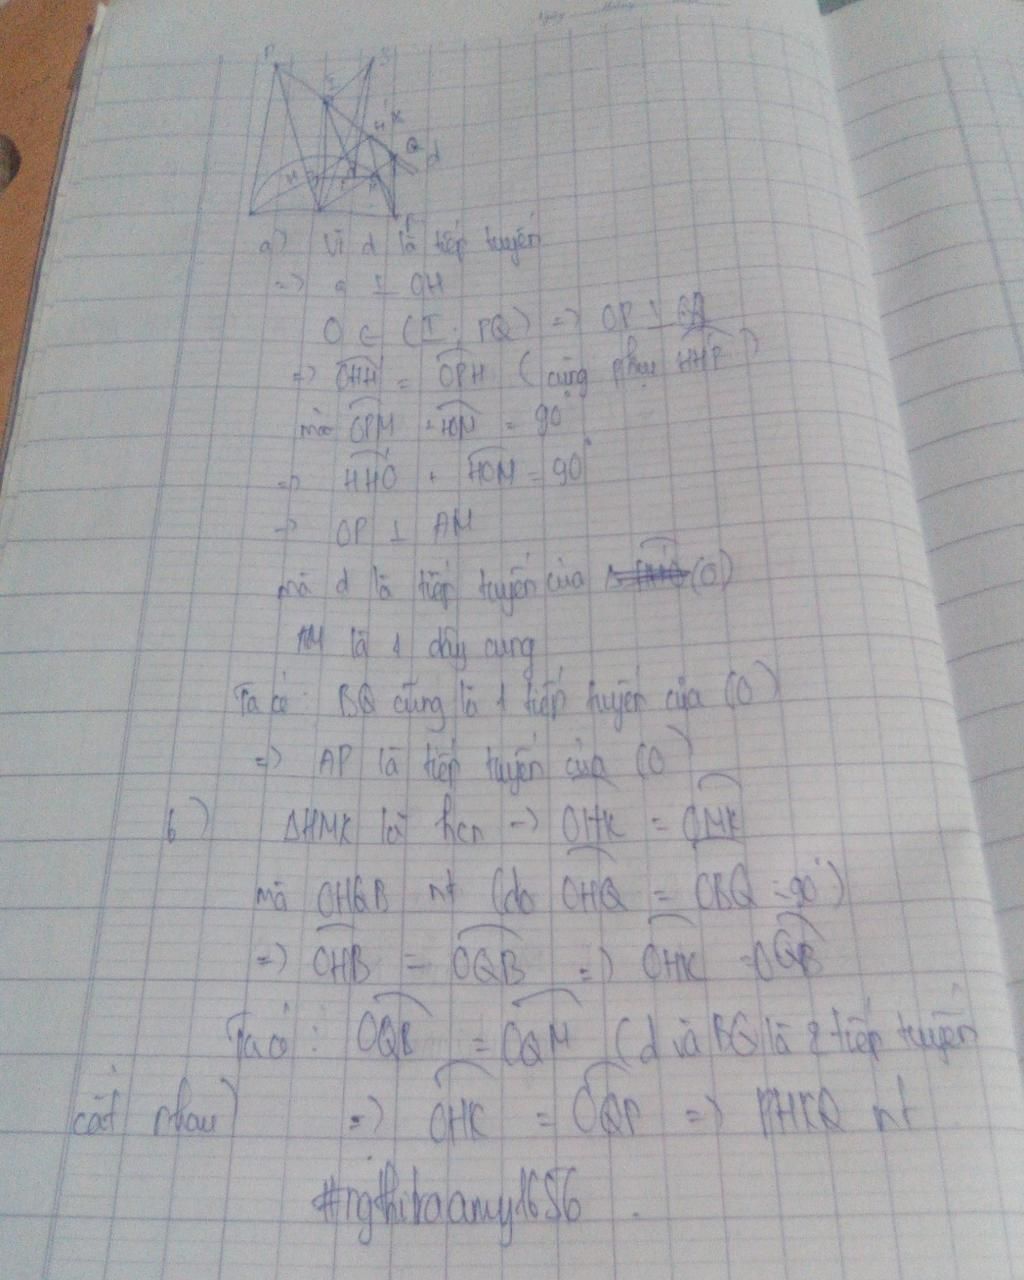 P
S
K
Q
d
a) Vì d là tiếp tuyến
=> d ⊥ OM
O ∈ (I; PQ) => OP ⊥
=> = OPM (cùng phụ )
mà OPM + = 90°
=> + HOM = 90°
=> OP ⊥ AM
mà d là tiếp tuyến của (O)
AM là 1 dây cung
Ta có: BQ cũng là 1 tiếp tuyến của (O)
=> AP là tiếp tuyến của (O)
b) OHMK là hcn => OHK = OMK
mà OMQB nt (do OMQ = OBQ = 90°)
=> OMB = OQB => OHK = OQB
Ta có: OQB = OQM (d và BQ là 2 tiếp tuyến
cắt nhau) => OHK = OQP => PHKQ nt